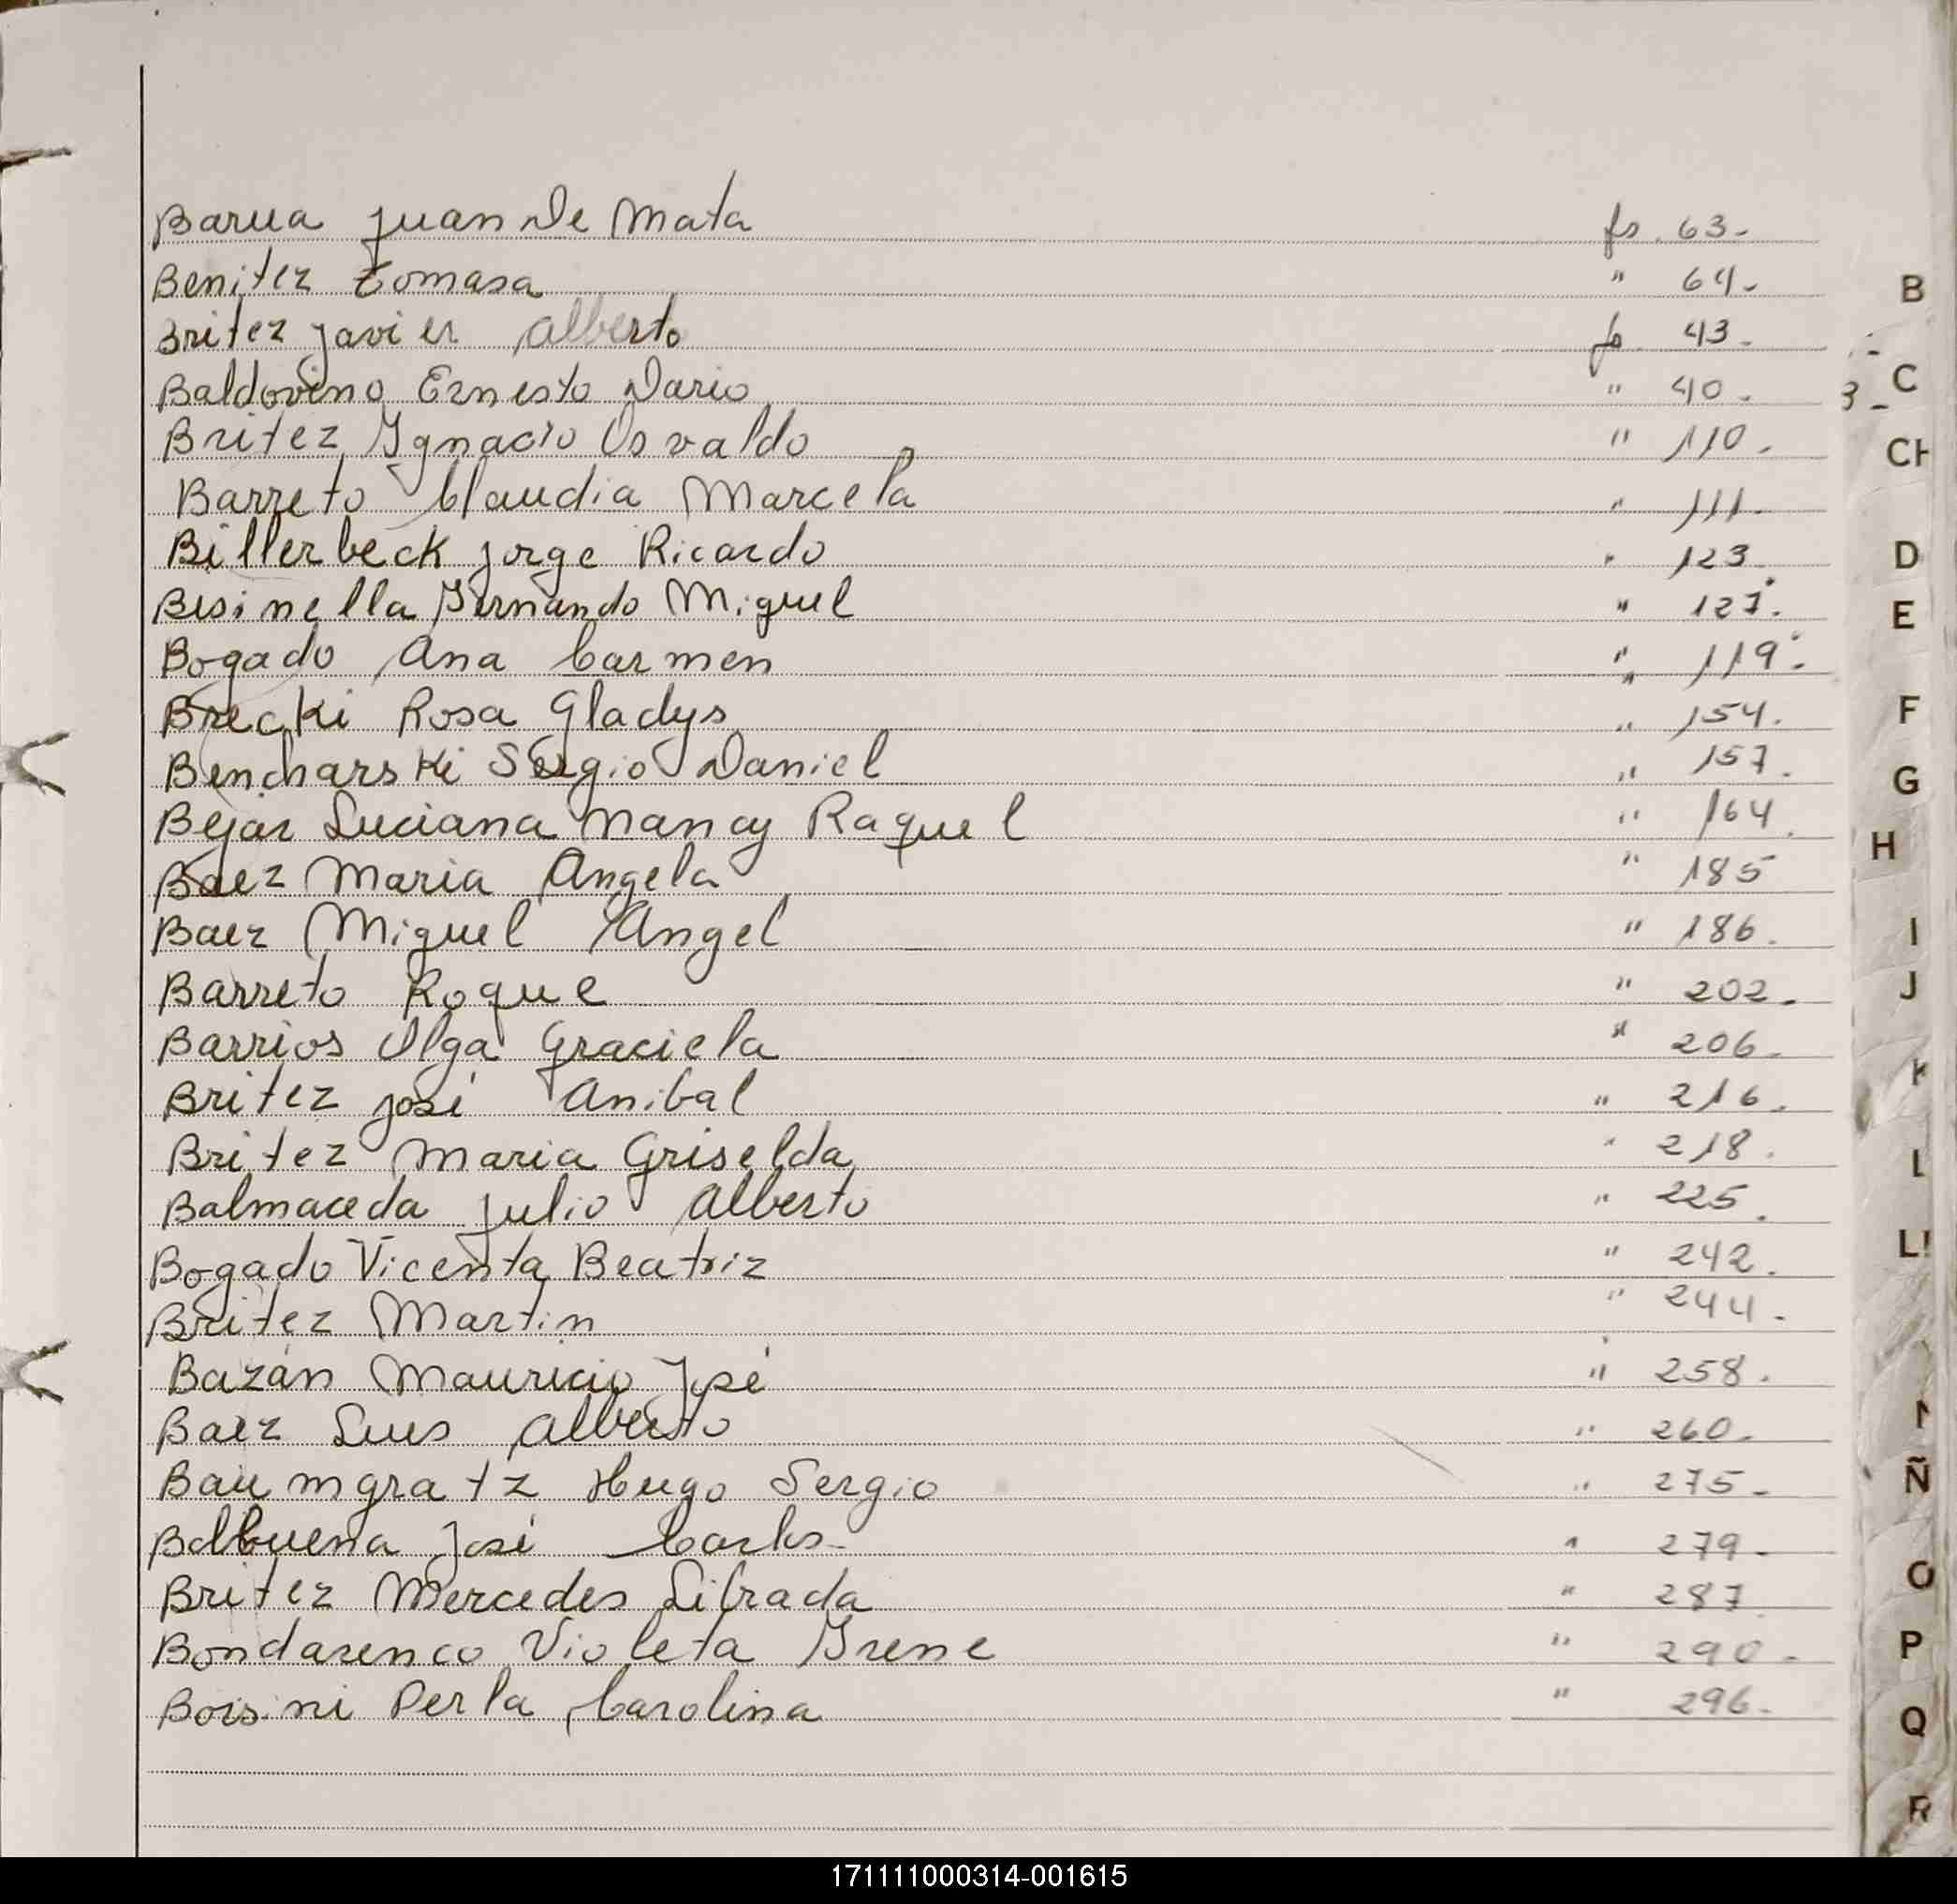 Barua Juan De Mata fs. 63.-
Benitez Tomasa " 64.-
Britez Javier Alberto fs. 43.-
Baldovino Ernesto Dario " 40.-
Britez Ignacio Osvaldo " 110.-
Barreto Claudia Marcela " 111.-
Billerbeck Jorge Ricardo " 123.
Bisinella Fernando Miguel " 127.
Bogado Ana Carmen " 119.-
Brecki Rosa Gladys " 154.
Bencharski Sergio Daniel " 157.
Bejar Luciana Nancy Raquel " 164.
Baez Maria Angela " 185
Baez Miguel Angel " 186.
Barreto Roque " 202.-
Barrios Olga Graciela " 206.-
Britez José Anibal " 216.
Britez Maria Griselda " 218.
Balmaceda Julio Alberto " 225.
Bogado Vicenta Beatriz " 242.
Britez Martin " 244.-
Bazán Mauricio José " 258.
Baez Luis Alberto " 260.-
Baumgratz Hugo Sergio " 275.-
Balbuena José Carlos- " 279.-
Britez Mercedes Librada " 287.
Bondarenco Violeta Irene " 290.-
Boisini Perla Carolina " 296.-
B
3- C
CH
D
E
F
G
H
I
J
K
L
LL
Ñ
O
P
Q
R
171111000314-001615